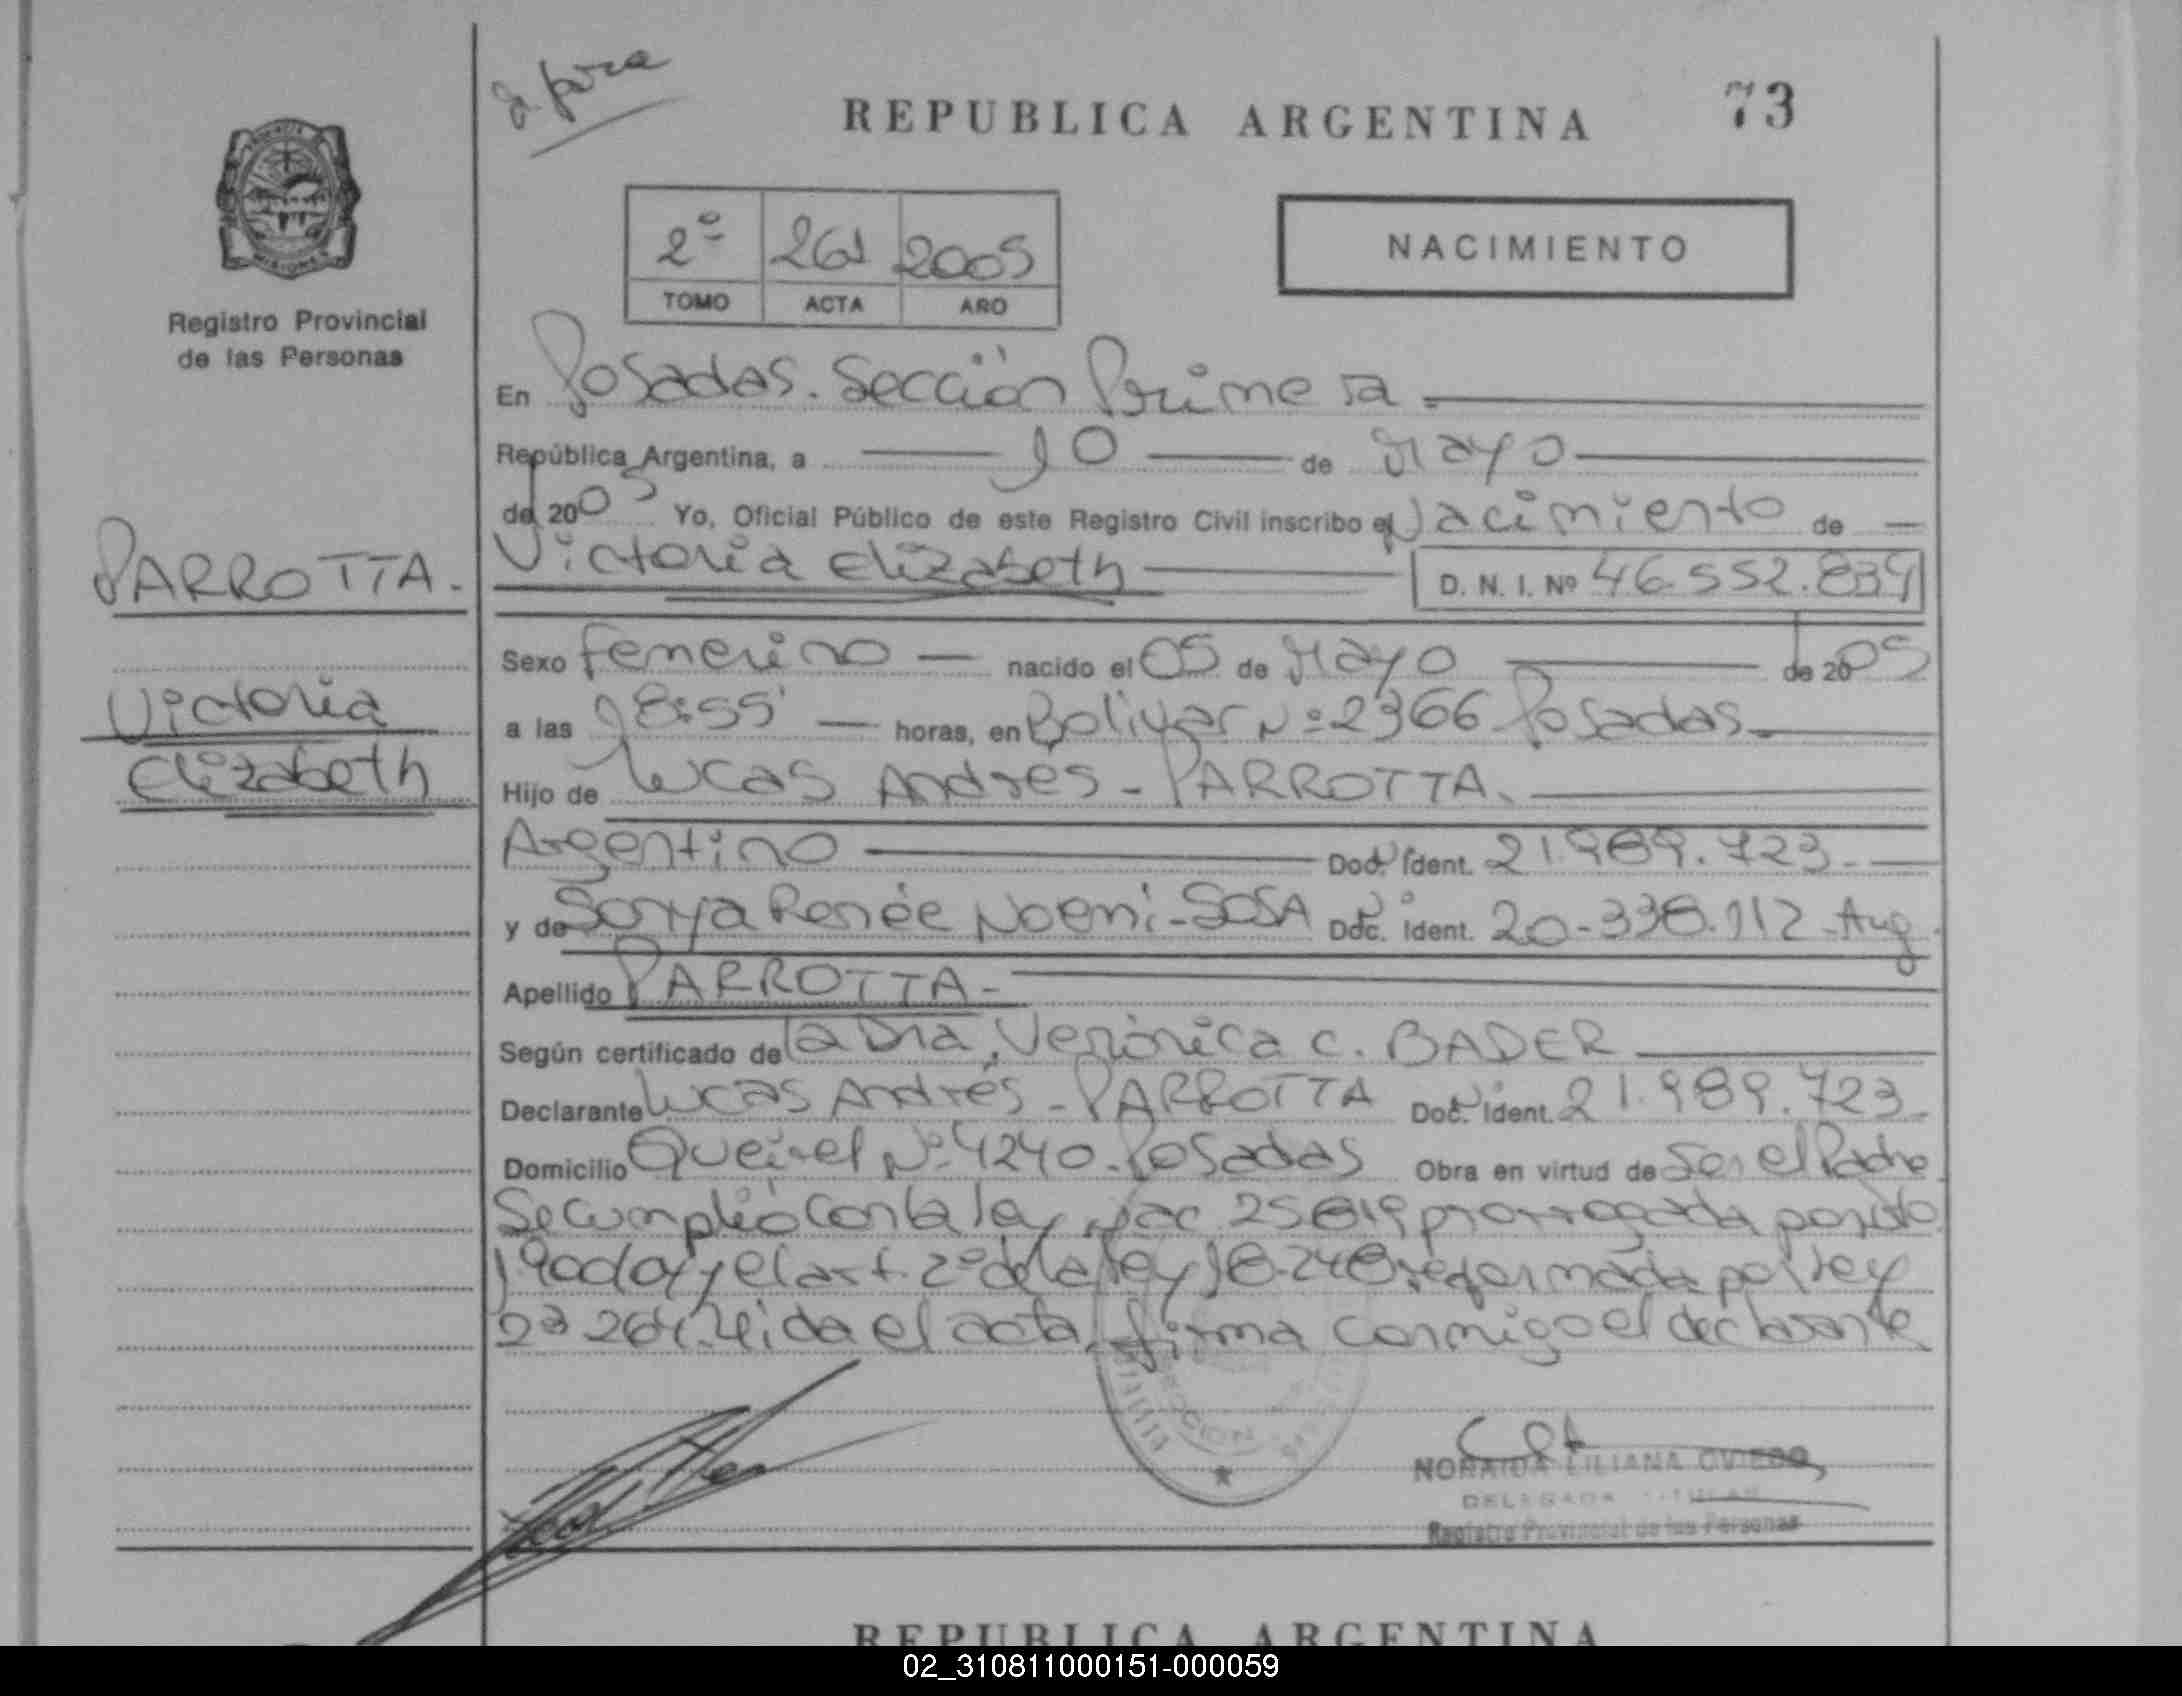 REPUBLICA ARGENTINA
73
2º 261 2005
TOMO ACTA AÑO
NACIMIENTO
MISIONES
Registro Provincial
de las Personas
En Posadas. Sección Primera.
República Argentina, a 10 de Mayo
de 2005 Yo, Oficial Público de este Registro Civil inscribo el Nacimiento de
PARROTTA.
Victoria Elizabeth D. N. I. Nº 46.552.834
Sexo femenino nacido el 05 de Mayo de 2005
Victoria
a las 18:55' horas, en Bolivar Nº 2366 Posadas.
Elizabeth
Hijo de Lucas Andrés - PARROTTA.
Argentino Doc. Ident. 21.989.723.
y de Sonya Renée Noemi - SOSA Doc. Ident. 20-338.112 - Arg.
Apellido PARROTTA -
Según certificado de la Dra. Verónica C. BADER
Declarante Lucas Andrés - PARROTTA Doc. Ident. 21.989.723.
Domicilio Queirel Nº 4240. Posadas Obra en virtud de Ser el Padre.
Se cumplió con la ley nac. 25819 prorrogada por dto.
190/04 y el art. 2º de la ley 18.248 reformada por ley
23264. Leida el acta, firma conmigo el declarante
NORAIDA LILIANA OVIEDO
DELEGADA TITULAR
Registro Provincial de las Personas
REPUBLICA ARGENTINA
02_310811000151-000059